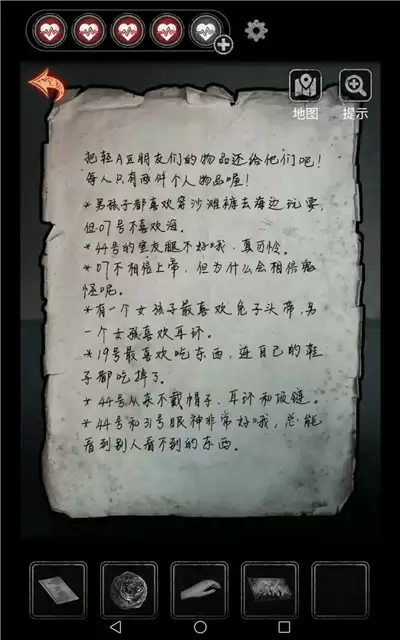 地图
提示
把轻A区朋友们的物品还给他们吧!
每人只有两件个人物品喔!
*男孩子都喜欢穿沙滩裤去海边玩耍,
但07号不喜欢海。
*44号的室友腿不好哦,真可怜。
*07不相信上帝,但为什么会相信鬼
怪呢。
*有一个女孩子最喜欢兔子头带,另
一个女孩喜欢耳环。
*19号最喜欢吃东西,连自己的鞋
子都吃掉了。
*44号从来不戴帽子、耳环和项链。
*44号和31号眼神非常好哦,总能
看到别人看不到的东西。